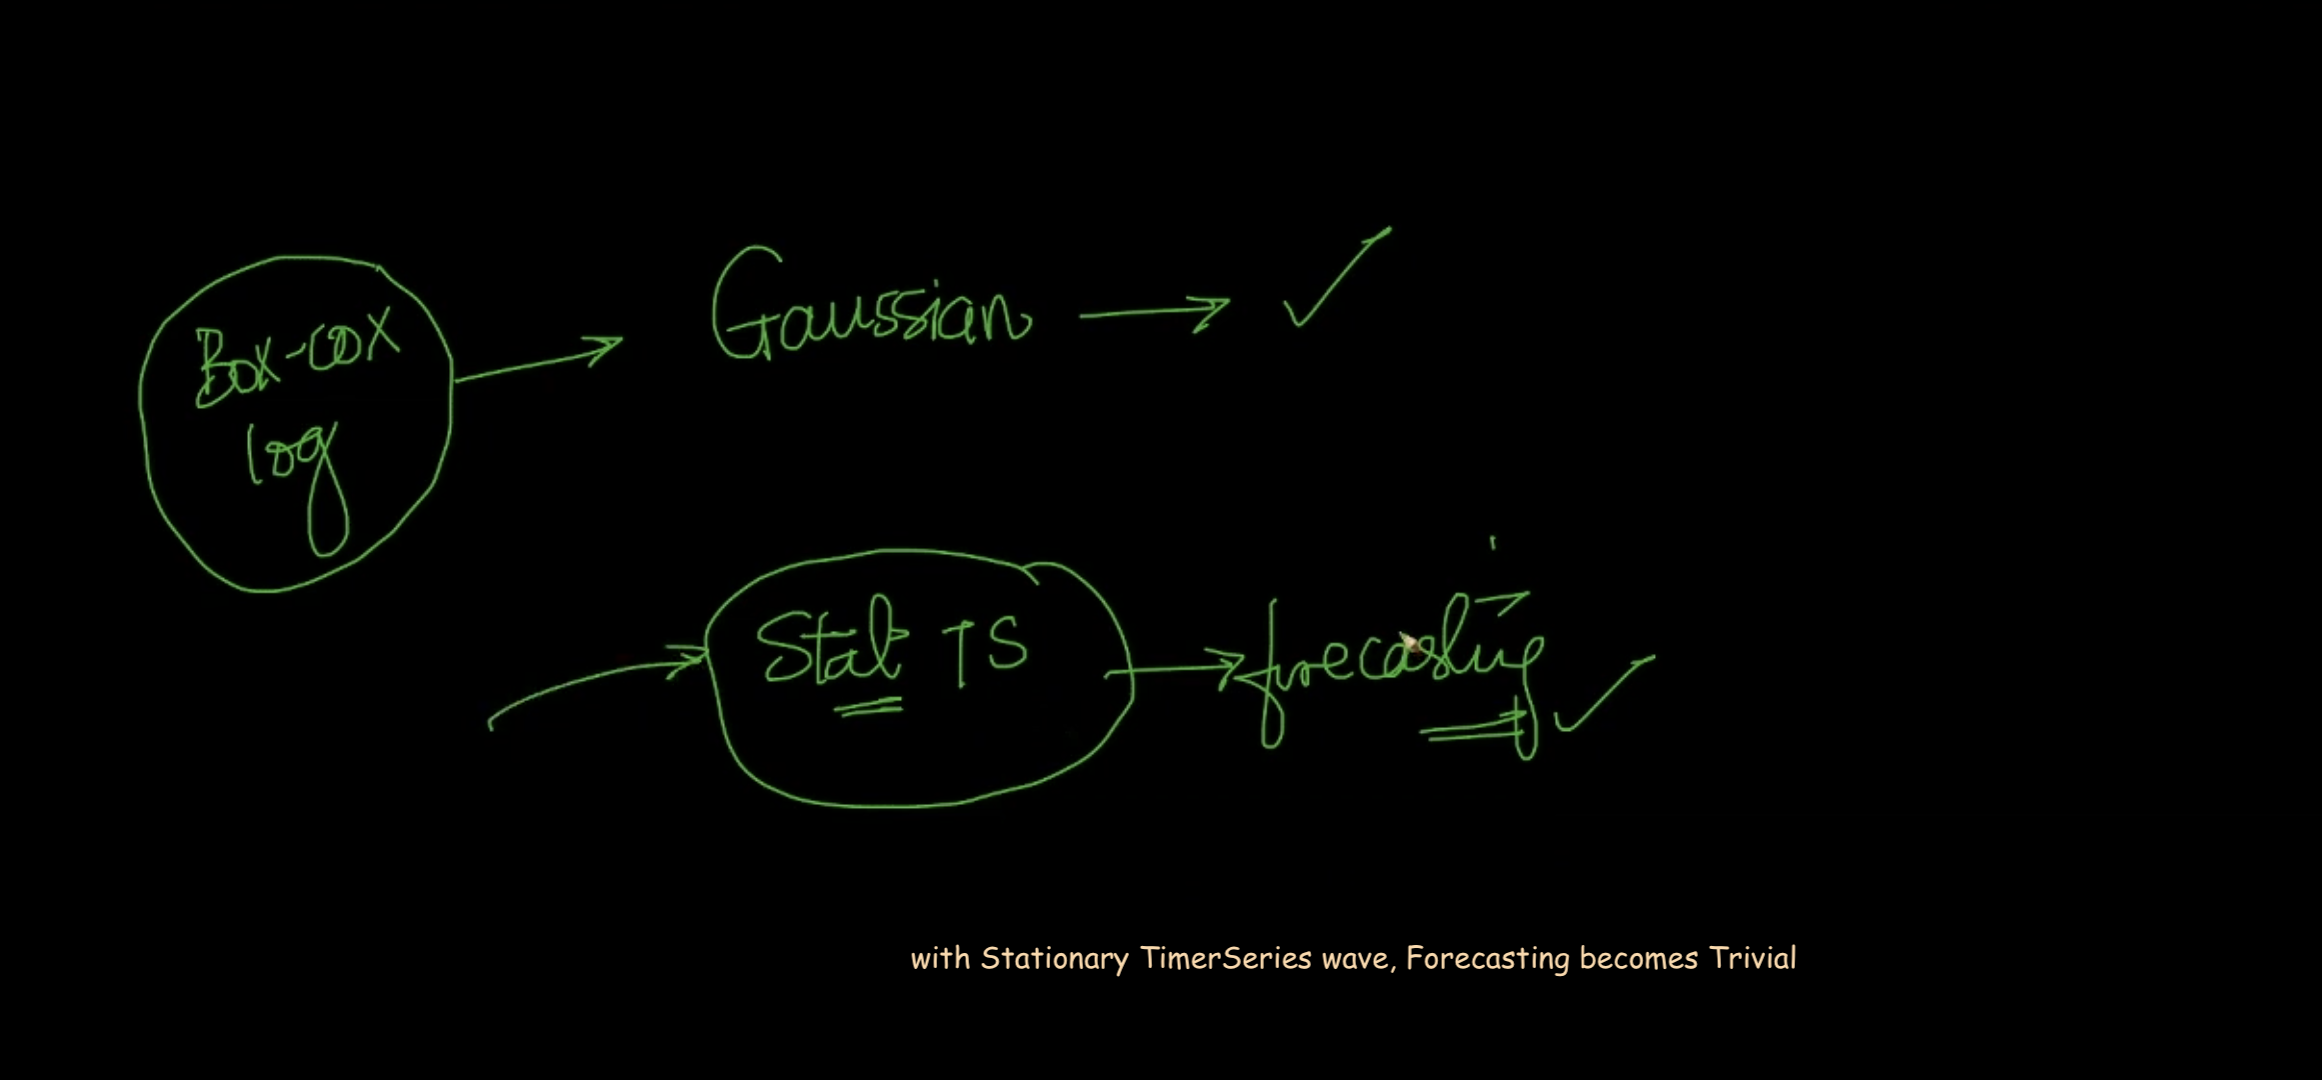 Box-cox
log
Gaussian
Stat TS
forecasting
with Stationary TimerSeries wave, Forecasting becomes Trivial